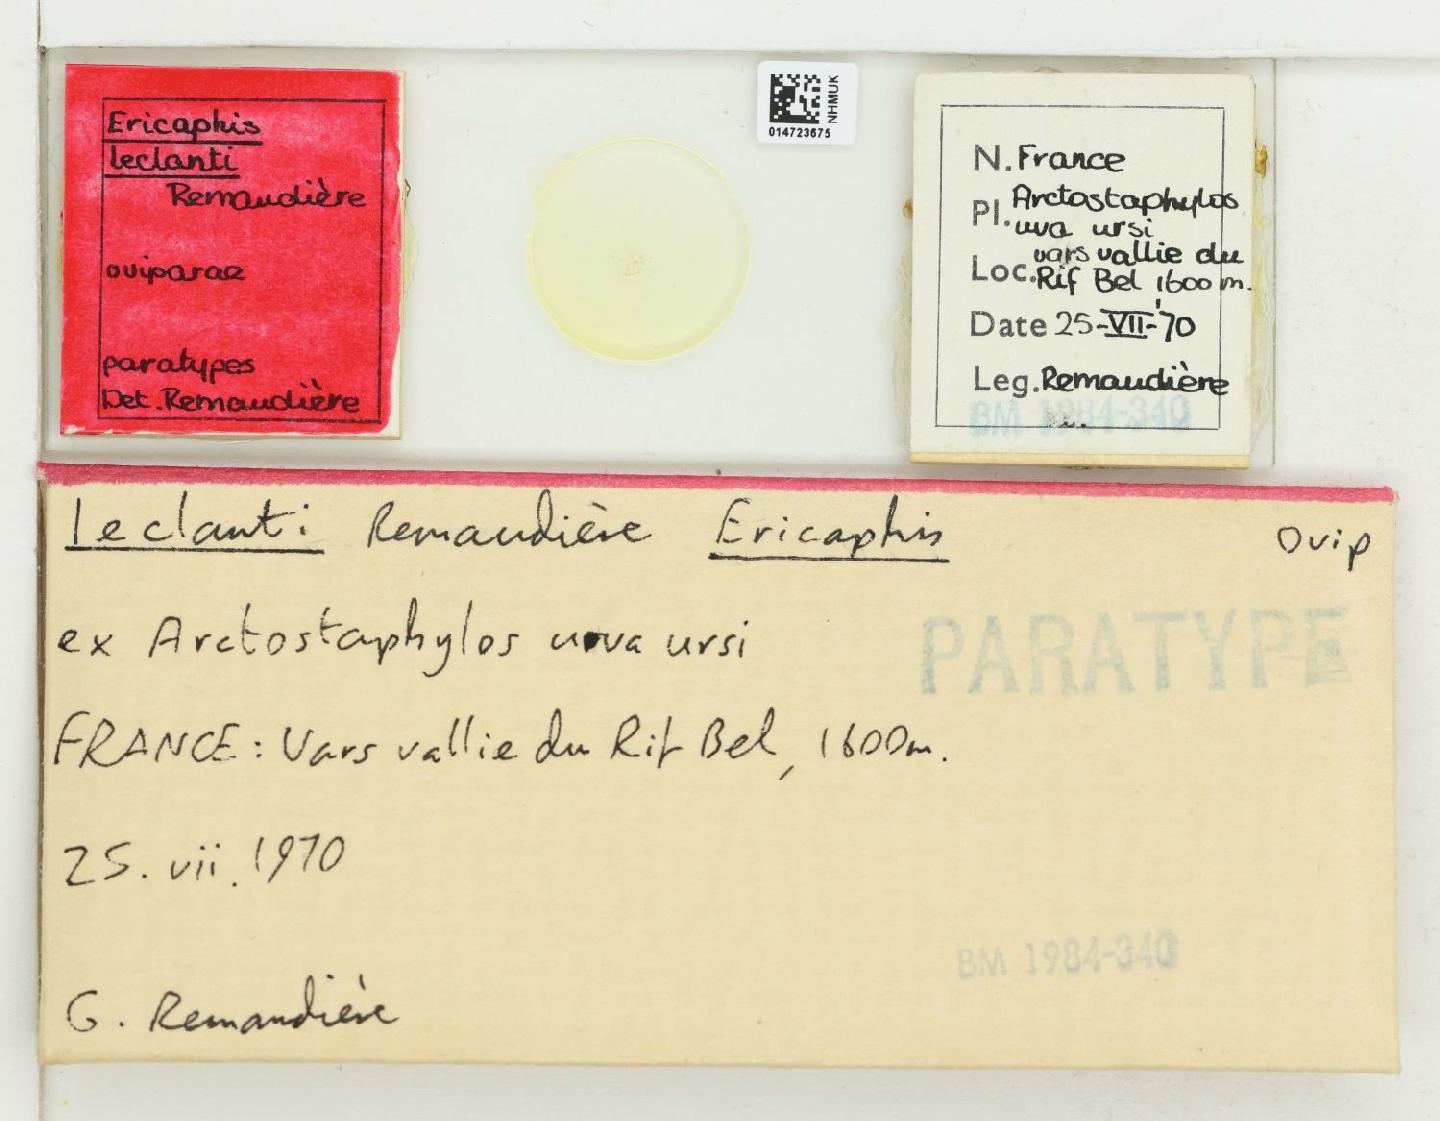 Ericaphis
leclanti
Remaudière
oviparae
paratypes
Det. Remaudière
NHMUK
014723675
N. France
Pl. Arctostaphylos
uva ursi
Loc. vars vallie du
Rif Bel 1600 m.
Date 25-VII-'70
Leg. Remaudière
BM 1984-340
leclanti Remaudière Ericaphis Ovip
ex Arctostaphylos uva ursi
PARATYPE
FRANCE: Vars vallie du Rif Bel, 1600m.
25. vii. 1970
BM 1984-340
G. Remaudière